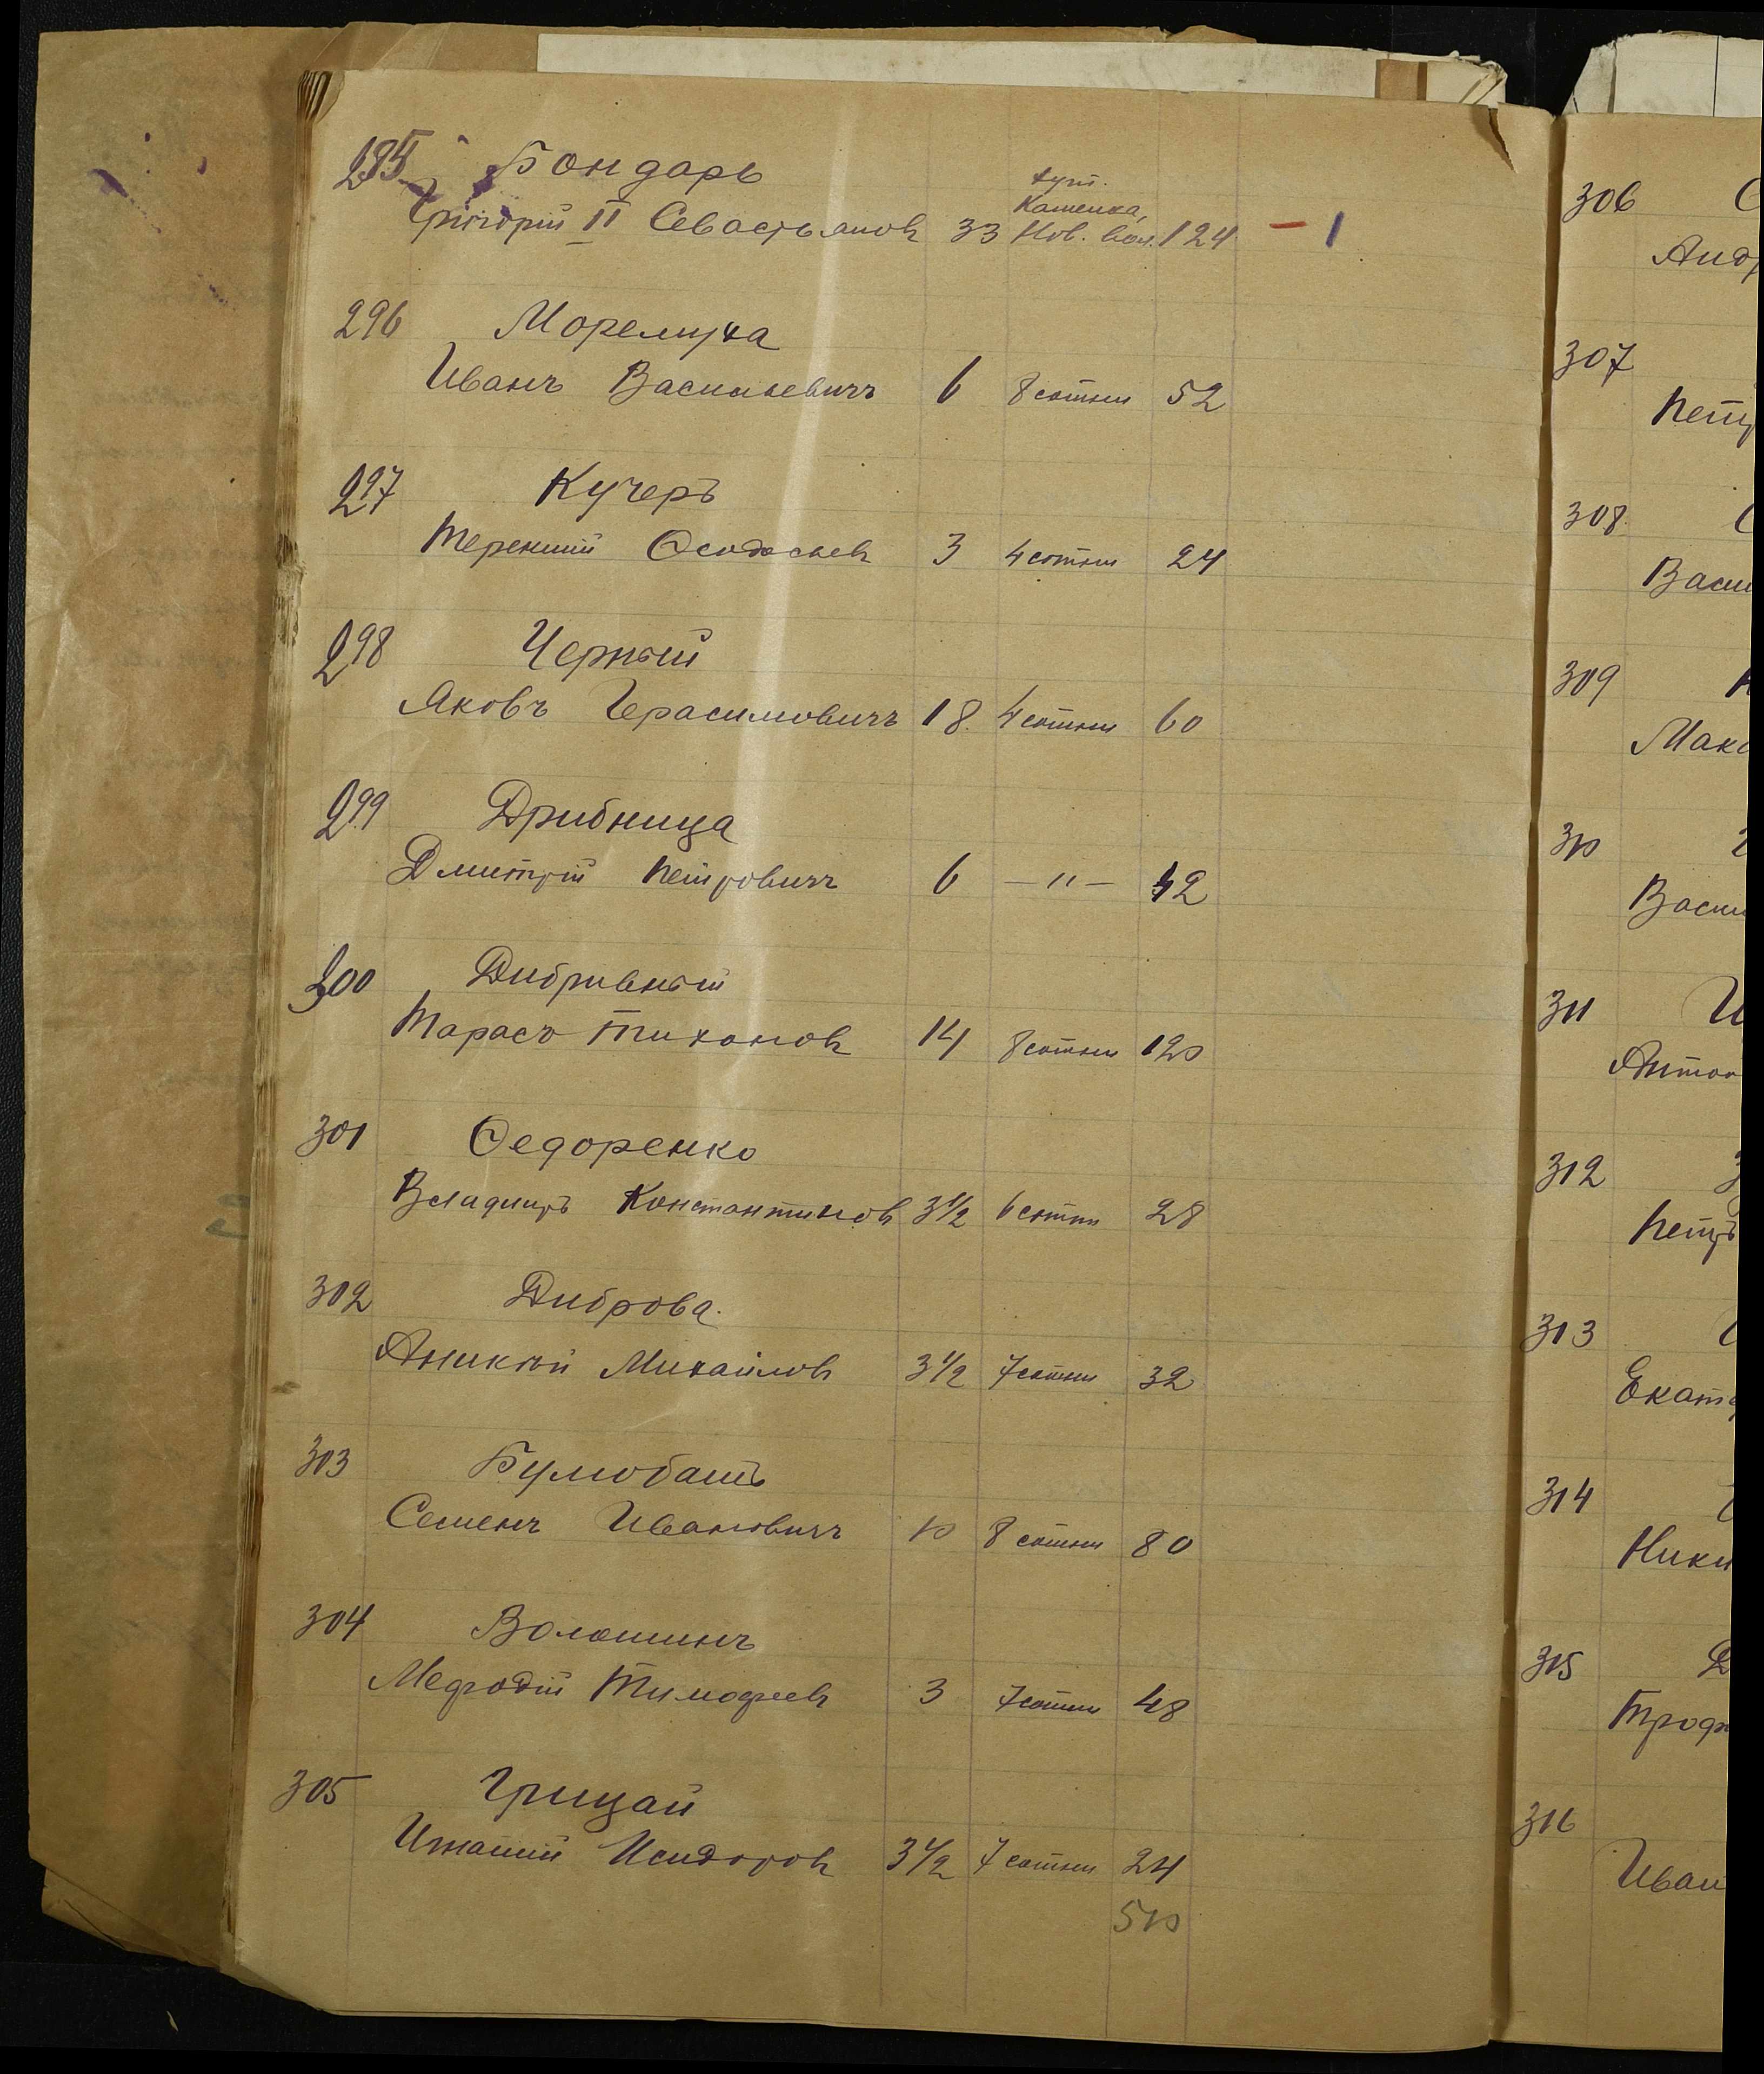 295 Бондарь
хут.
Каменка,
Григорій II Севастьянов 33 Нов. вол. 124 — 1
296 Морелиука
Иванъ Васильевичъ 6 8 сотни 52
297 Кучеръ
Терентий Ѳеодосьев 3 4 сотни 24
298 Черный
Яковъ Герасимовичъ 18. 4 сотни 60
299 Дрибница
Дмитрій Петровичъ 6 — " — 42
300 Дибривный
Тарасъ Тихонов 14 8 сотни 120
301 Ѳедоренко
Владимръ Константинов 3½ 6 сотни 28
302 Диброва.
Аникій Михайлов 3½ 7 сотни 32
303 Булюбашъ
Семенъ Ивановичъ 10 8 сотни 80
304 Волошинъ
Мефодій Тимофеев 3 7 сотни 48
305 Грицай
Игнатий Исидоров 3½ 7 сотни 24
510
306
307
Петр
308.
Васи
309
Мак
310
Васи
311
Антон
312
Петръ
313
Екат
314
Ники
315
Троф
316
Иван